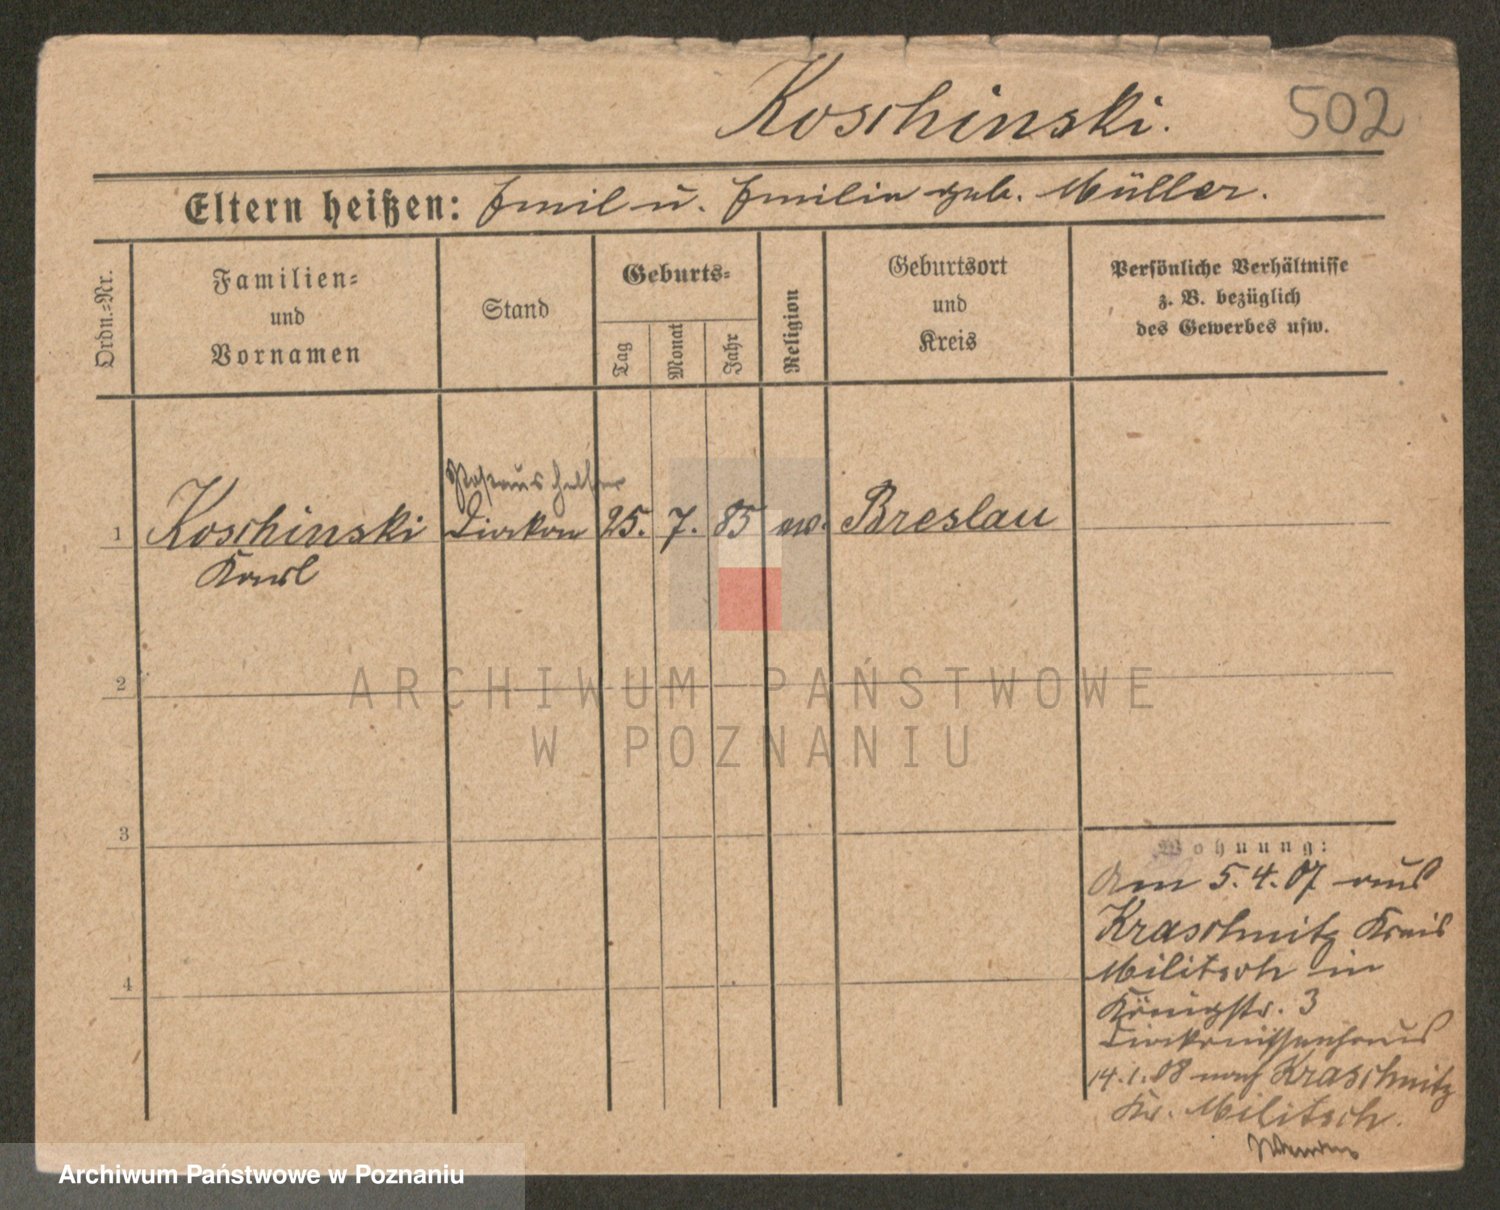 Koschinski.
502
Eltern heißen: Emil u. Emilie geb. Müller.
Ordn.=Nr.
Familien=
und
Vornamen
Stand
Geburts=
Tag
Monat
Jahr
Religion
Geburtsort
und
Kreis
Persönliche Verhältnisse
z. B. bezüglich
des Gewerbes usw.
Postaushelfer
1 Koschinski Diakon 25. 7. 85 ev. Breslau
Karl
2
3
4
Wohnung:
Am 5.4.07 aus
Kraschnitz Kreis
Militsch in
Königstr. 3
Diakonissenhaus
14.1.08 nach Kraschnitz
Kr. Militsch.
ARCHIWUM PAŃSTWOWE
W POZNANIU
Archiwum Państwowe w Poznaniu